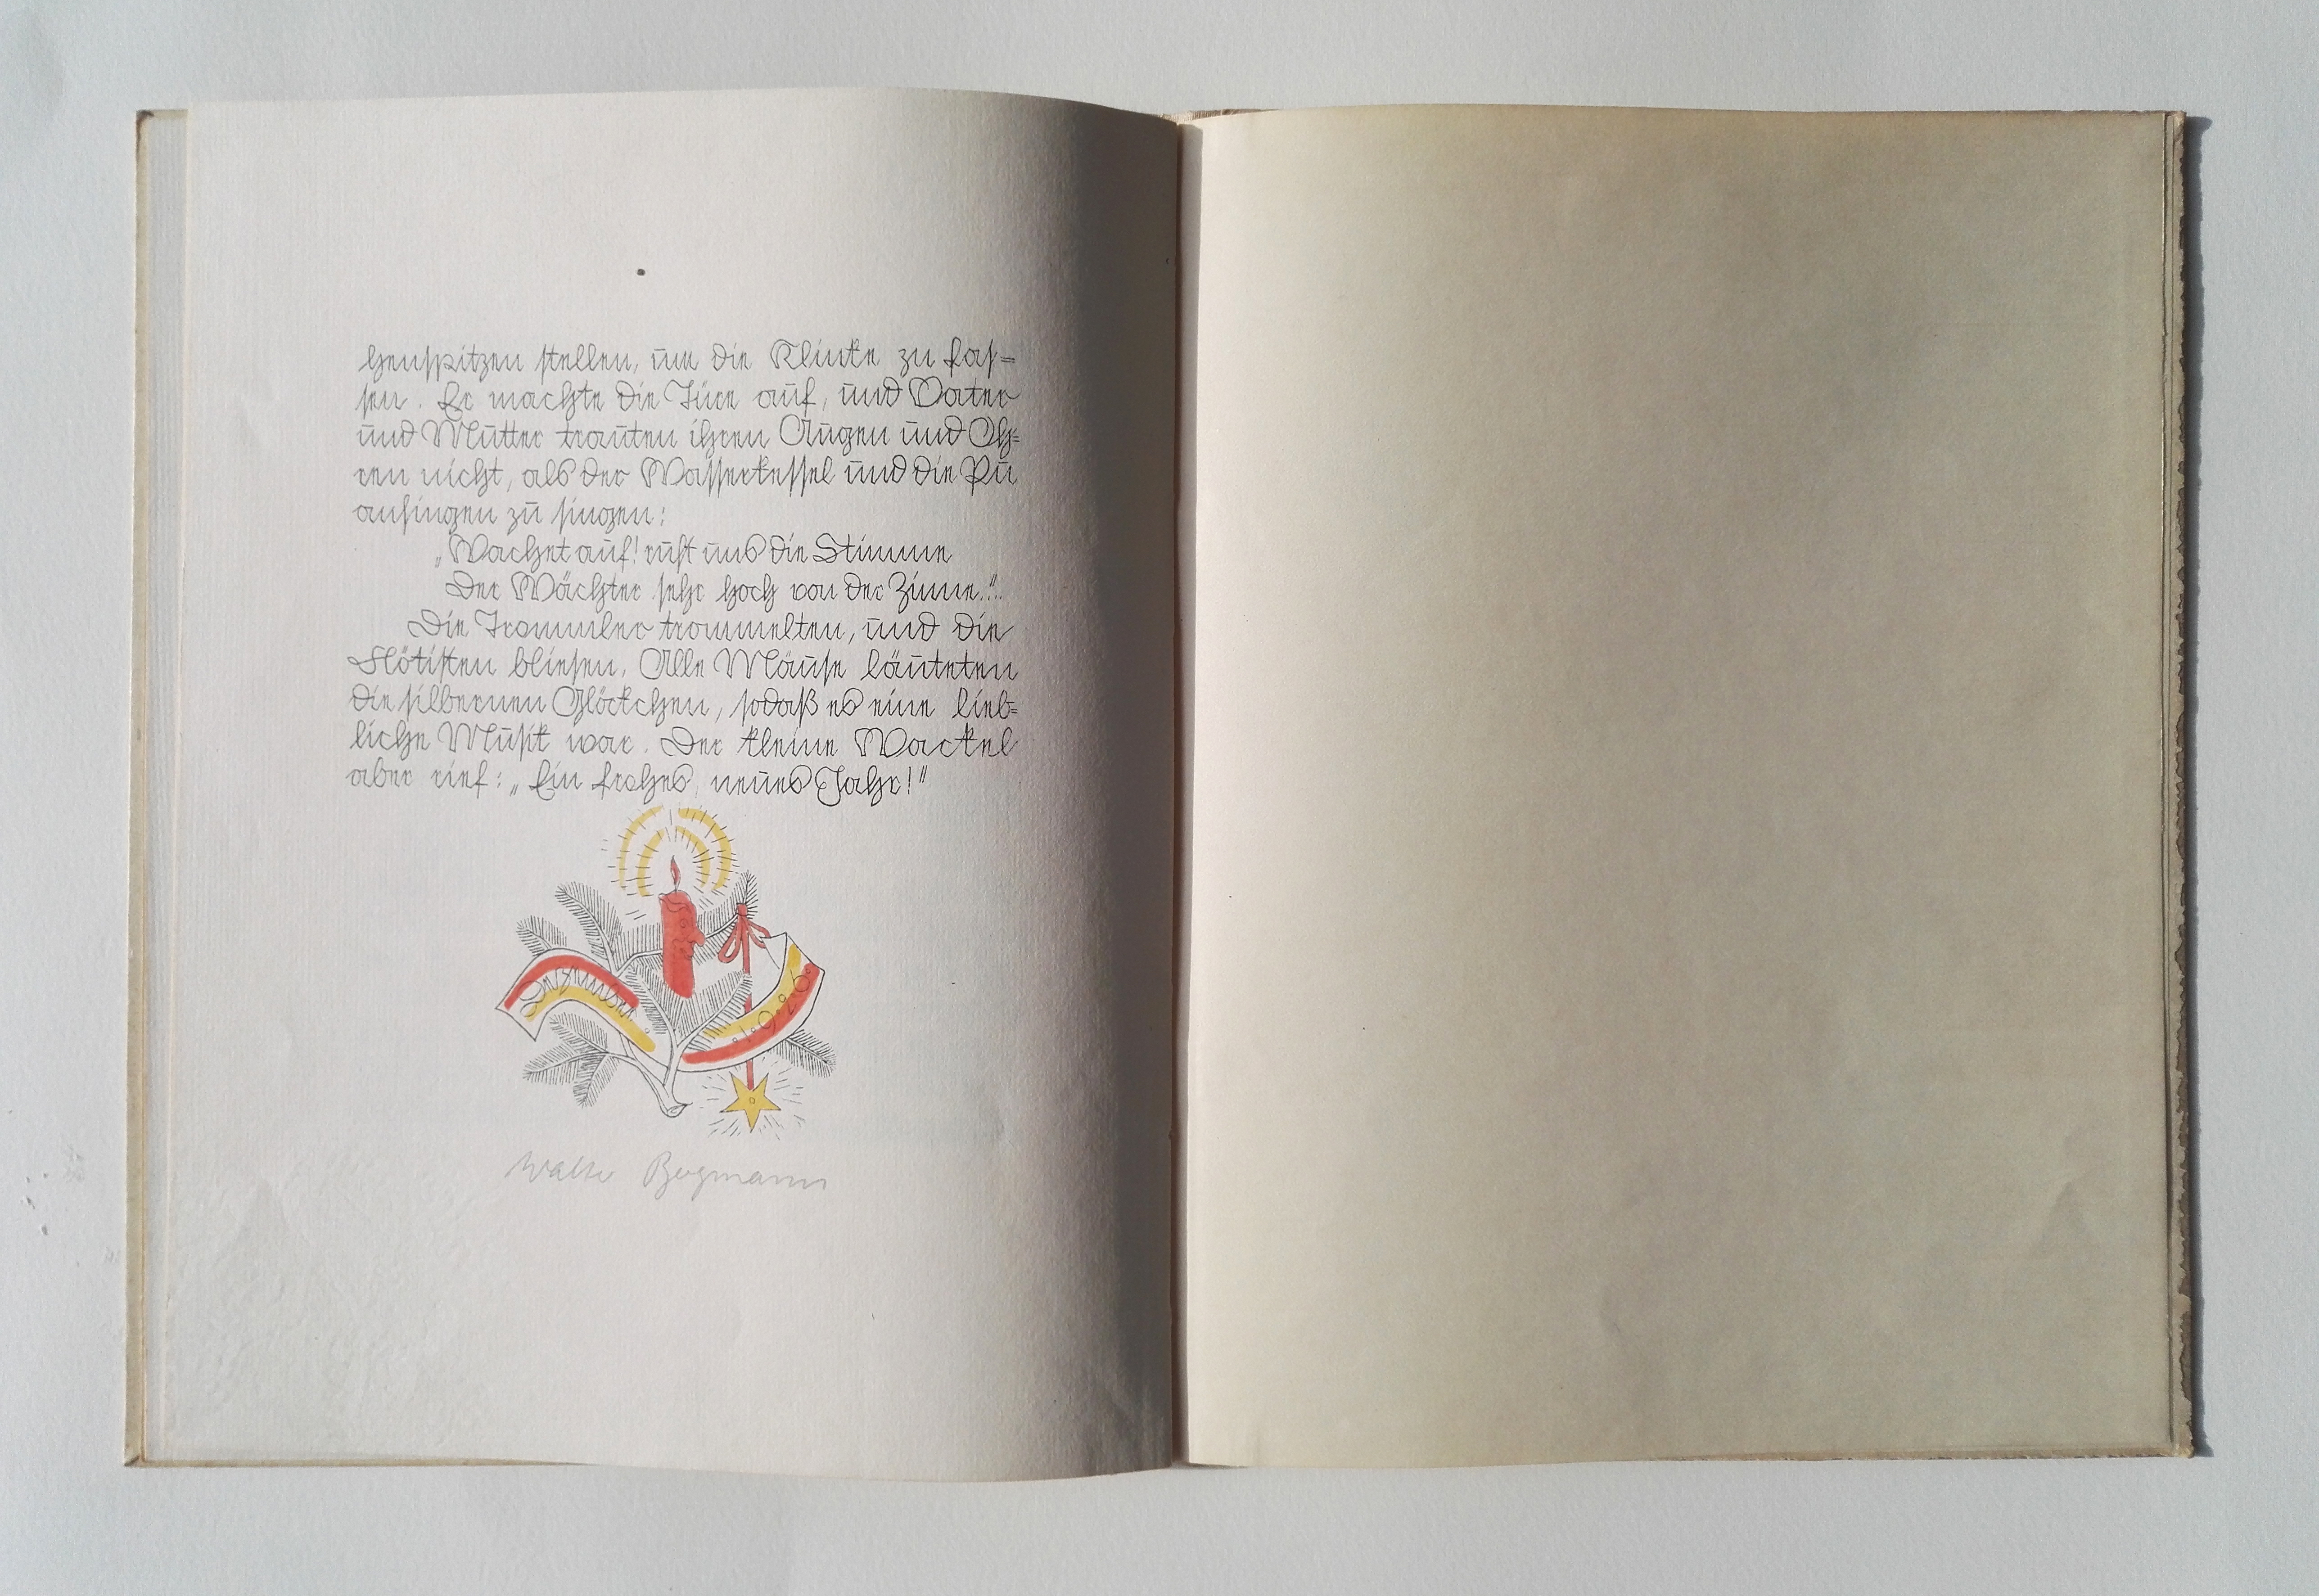 henspitzen stellen, um die Klinke zu fas=
sen. Er machte die Türe auf, und Vater
und Mutter trauten ihren Augen und Oh=
ren nicht, als der Wasserkessel und die Pu
anfingen zu singen:
„Wachet auf! ruft uns die Stimme
Der Wächter sehr hoch von der Zinne."..
Die Trommler trommelten, und die
Flötisten bliesen. Alle Mäuse läuteten
die silbernen Glöckchen, sodaß es eine lieb=
liche Musik war. Der kleine Wackel
aber rief: „Ein frohes, neues Jahr!"
1926
Walter Bergmann